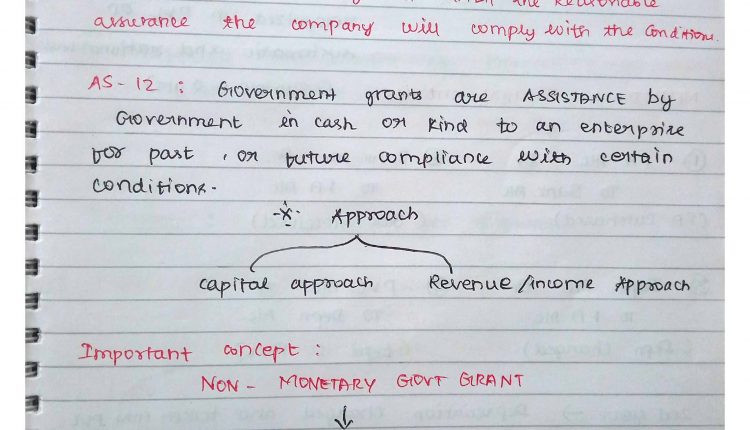 the Reasonable
assurance the company will comply with the conditions.
AS-12 : Government grants are ASSISTANCE by
Government in cash or kind to an enterprize
for past , or future compliance with certain
conditions.
Approach
Capital approach Revenue/income Approach
Important concept :
NON - MONETARY GOVT GRANT